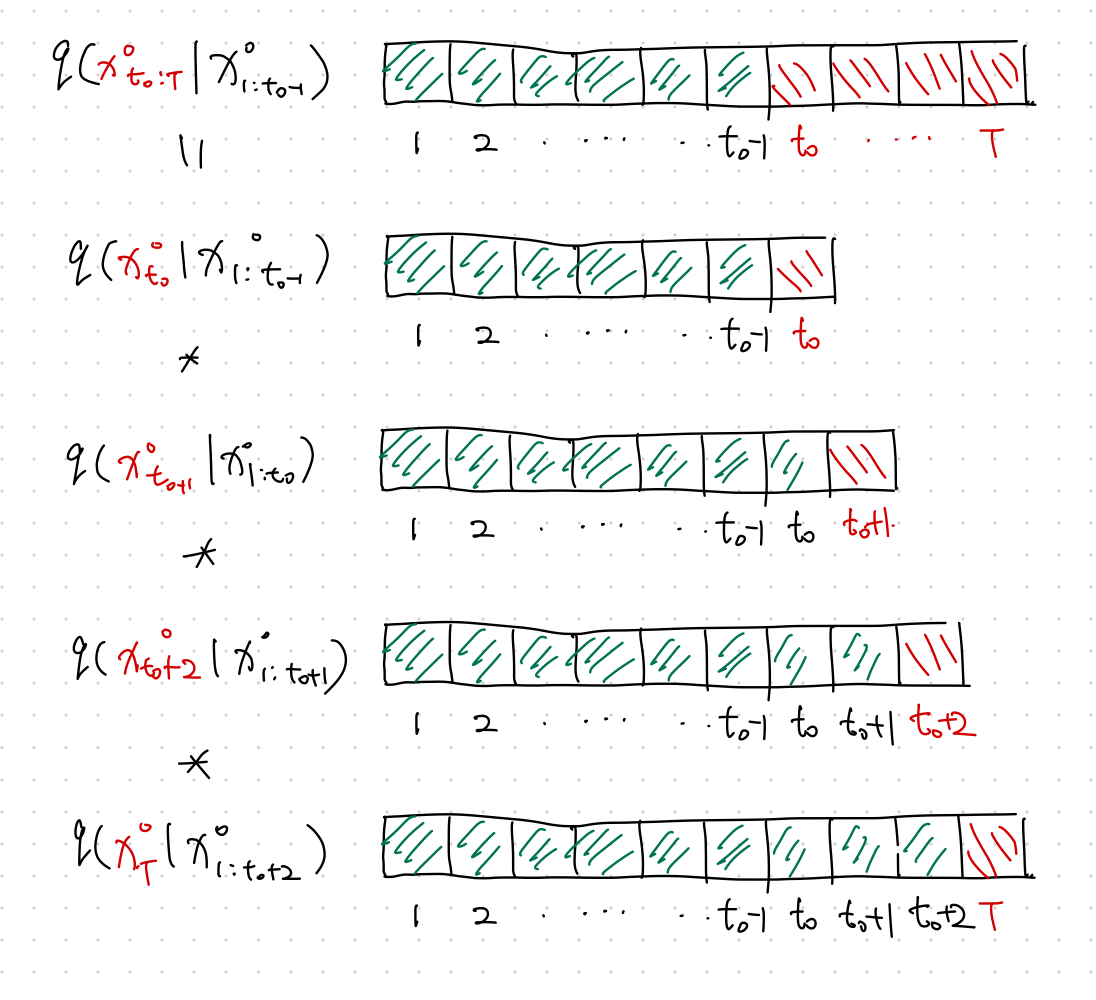 q(x⁰ₜ₀:T | x⁰₁:ₜ₀₋₁)
1 2 . ··· . . t₀-1 t₀ ···· T
||
q(x⁰ₜ₀ | x⁰₁:ₜ₀₋₁)
1 2 . ··· . . t₀-1 t₀
*
q(x⁰ₜ₀₊₁ | x⁰₁:ₜ₀)
1 2 . ··· . . t₀-1 t₀ t₀+1
*
q(x⁰ₜ₀₊₂ | x⁰₁:ₜ₀₊₁)
1 2 . ··· . . t₀-1 t₀ t₀+1 t₀+2
*
q(x⁰T | x⁰₁:ₜ₀₊₂)
1 2 . ··· . . t₀-1 t₀ t₀+1 t₀+2 T